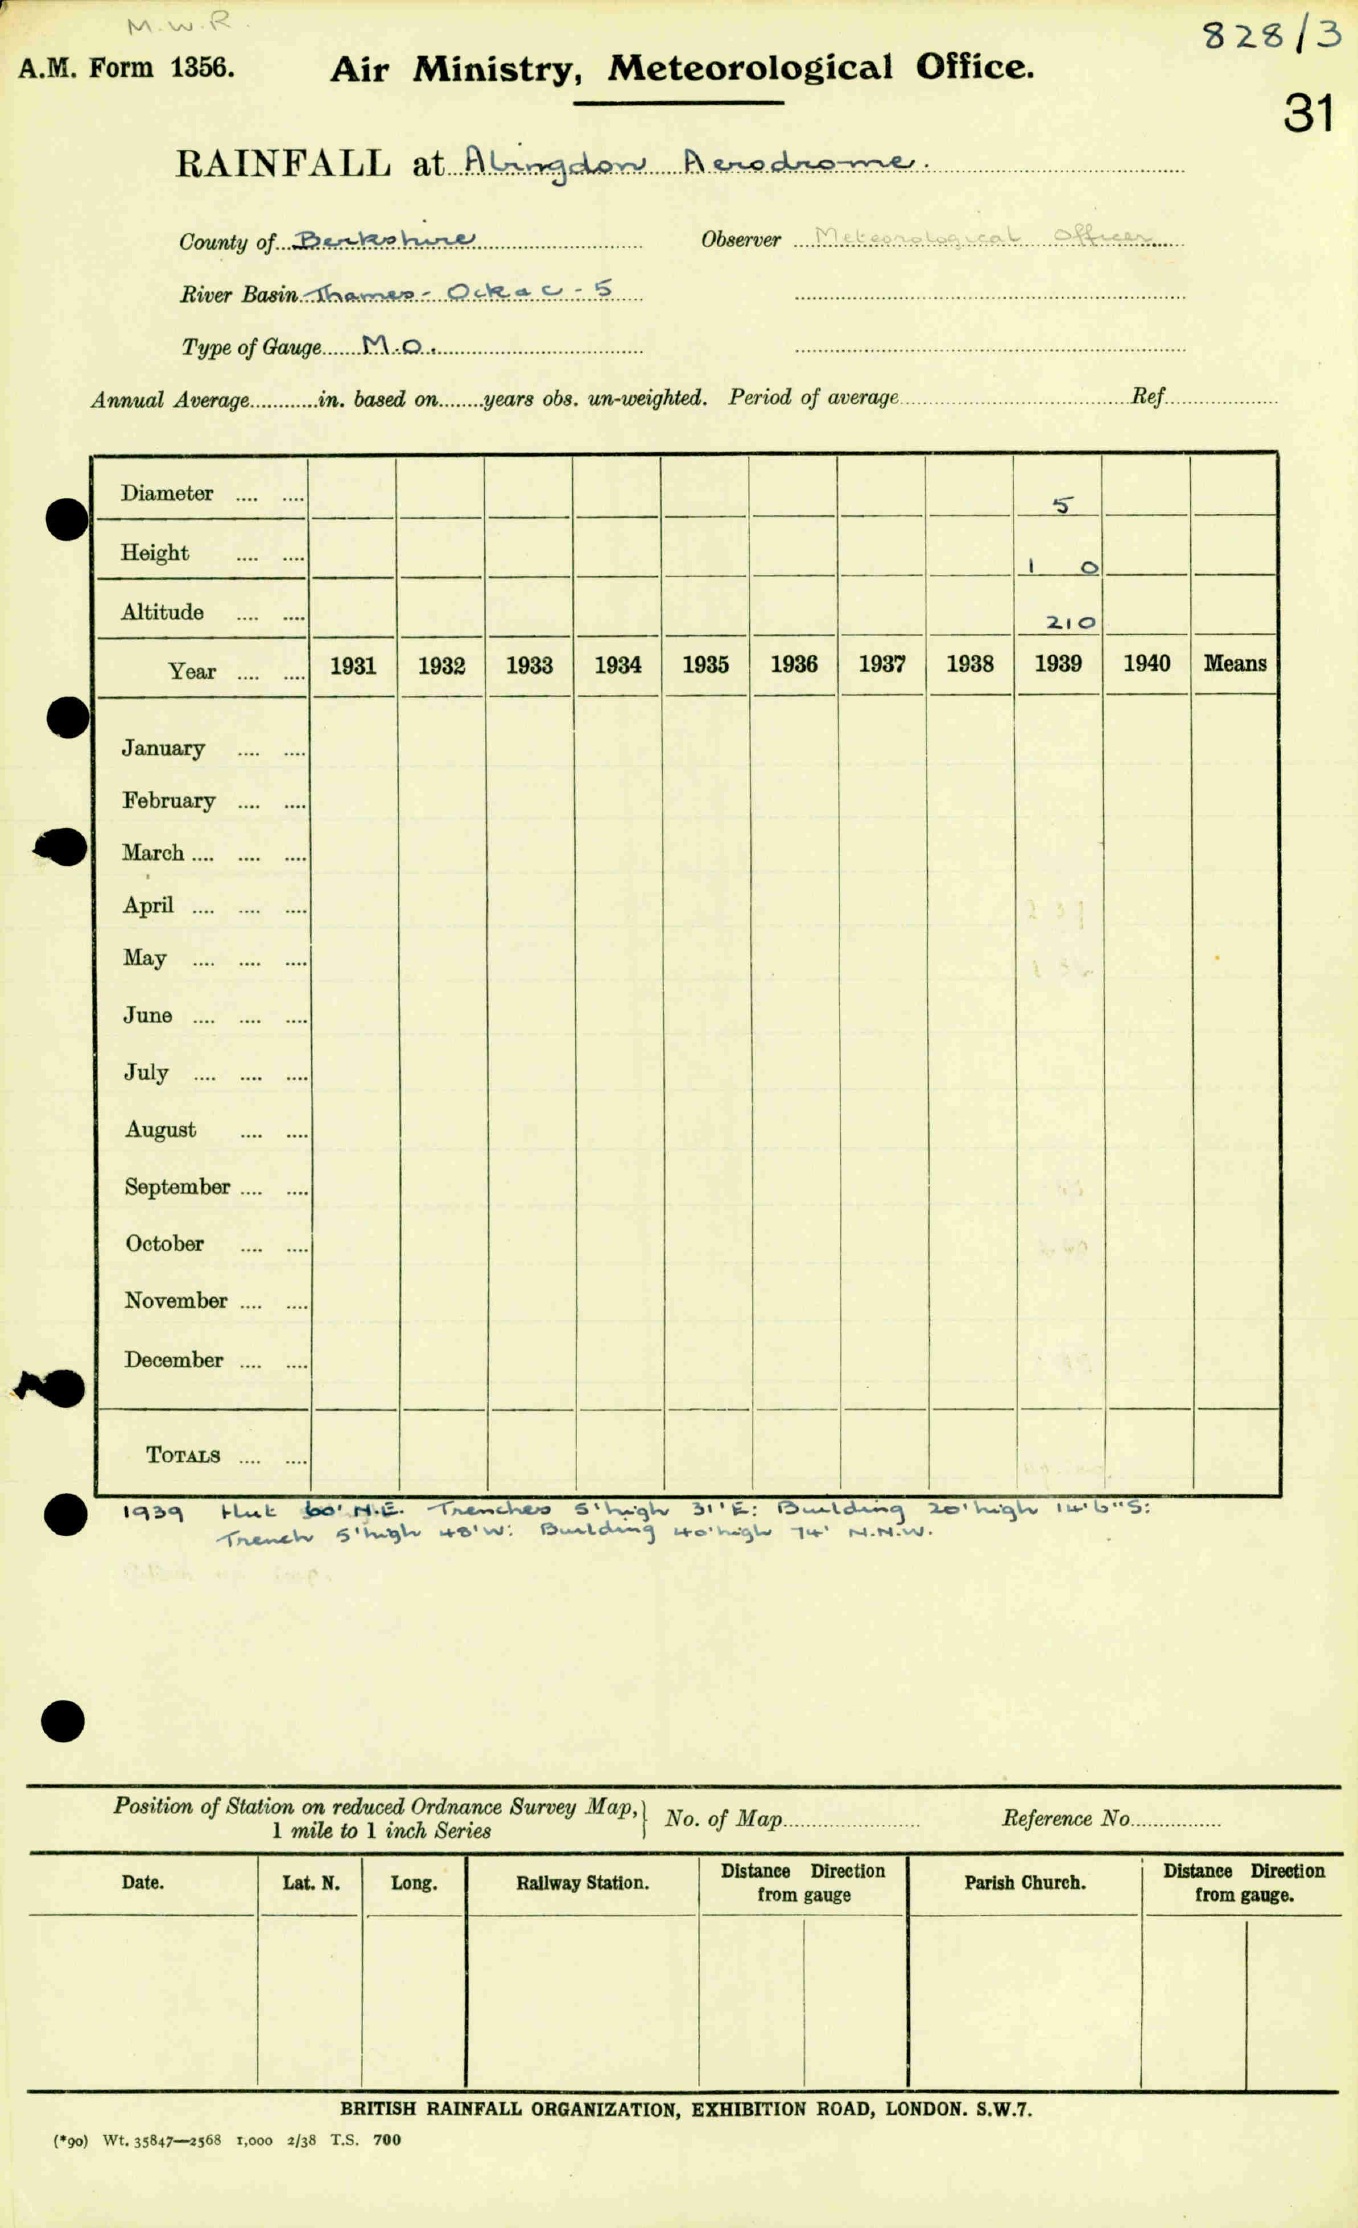 M.W.R.
828/3
A.M. Form 1356.
Air Ministry, Meteorological Office.
31
RAINFALL at Abingdon Aerodrome.
County of Berkshire Observer Meteorological Officer
River Basin Thames - Ock a c - 5
Type of Gauge M.O.
Annual Average............in. based on........years obs. un-weighted. Period of average Ref.
Diameter .... .... 5
Height .... .... 1 0
Altitude .... .... 210
Year .... .... 1931 1932 1933 1934 1935 1936 1937 1938 1939 1940 Means
January .... ....
February .... ....
March .... .... ....
April .... .... ....
May .... .... ....
June .... .... ....
July .... .... ....
August .... ....
September .... ....
October .... ....
November .... ....
December .... ....
TOTALS .... ....
1939 Hut 60' N.E. Trenches 5' high 31' E: Building 20' high 14' 6" S:
Trench 5' high 48' W: Building 40' high 74' N.N.W.
Position of Station on reduced Ordnance Survey Map, } No. of Map Reference No.
1 mile to 1 inch Series
Date. Lat. N. Long. Railway Station. Distance Direction from gauge Parish Church. Distance Direction from gauge.
BRITISH RAINFALL ORGANIZATION, EXHIBITION ROAD, LONDON. S.W.7.
(*90) Wt. 35847—2568 1,000 2/38 T.S. 700